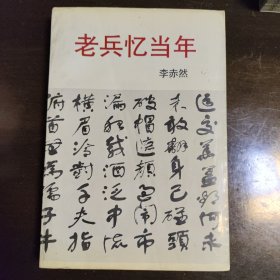 老兵忆当年
李赤然
運交華蓋欲何求
未敢翻身已碰頭
破帽遮顔過鬧市
漏船載酒泛中流
横眉冷對千夫指
俯首甘為孺子牛